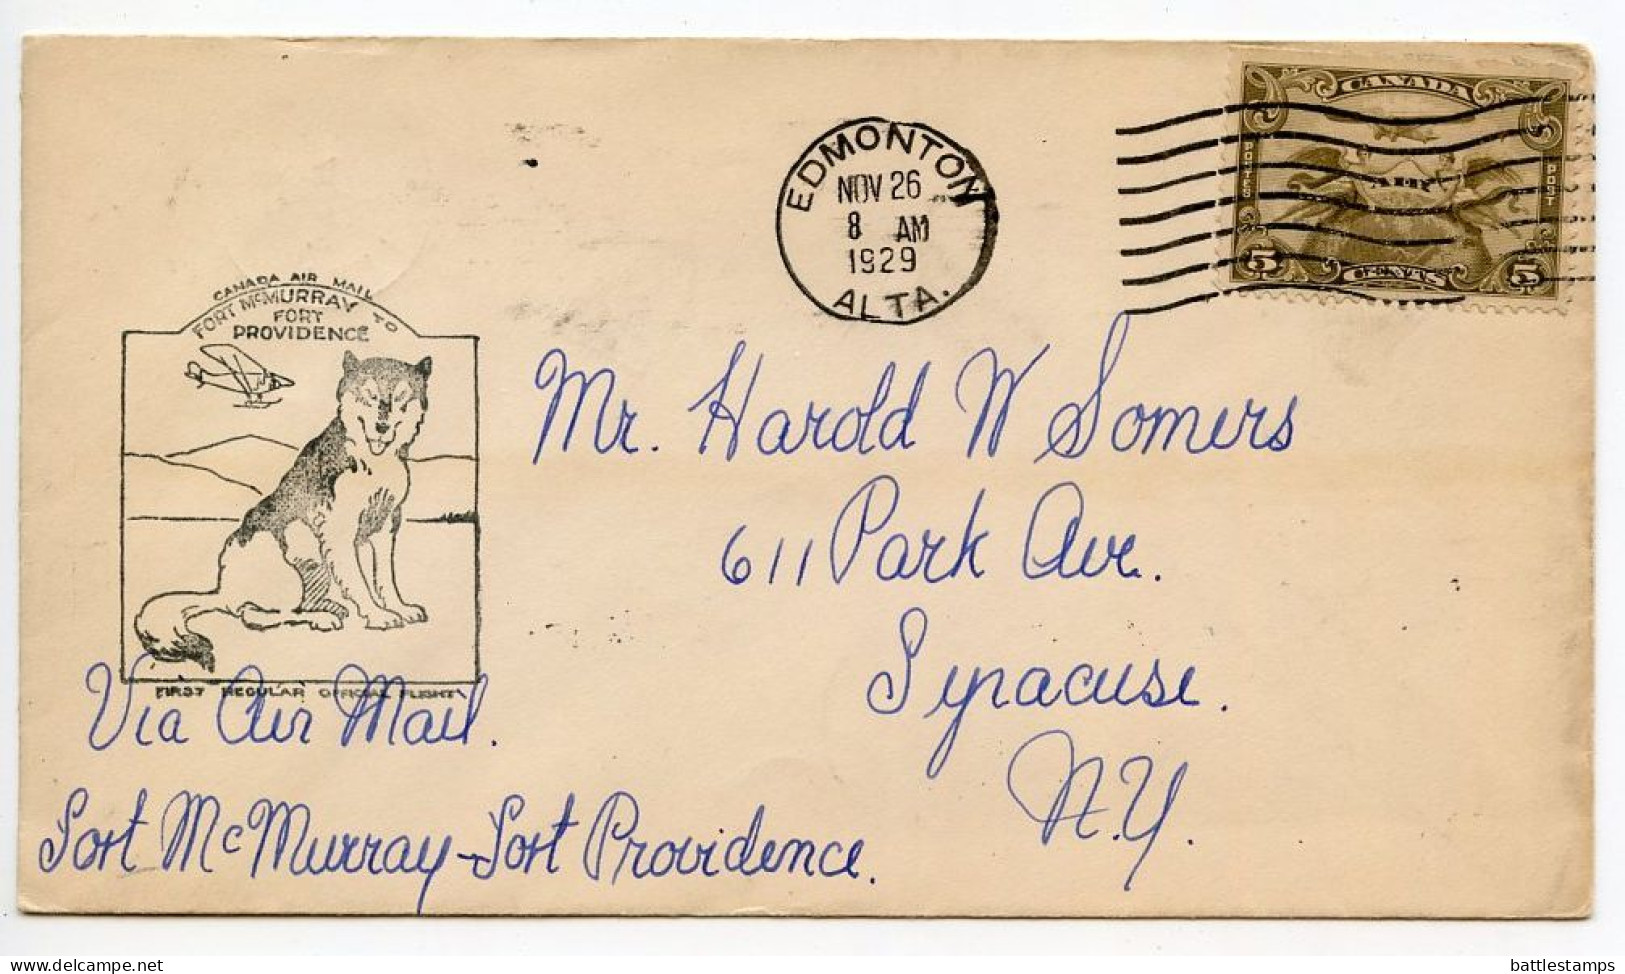 CANADA AIR MAIL
FORT McMURRAY TO
FORT
PROVIDENCE
FIRST REGULAR OFFICIAL FLIGHT
EDMONTON
NOV 26
8 AM
1929
ALTA.
CANADA
POSTES
AIR
POST
5 CENTS 5
Mr. Harold W Somers
611 Park Ave.
Syracuse.
N.Y.
Via Air Mail.
Fort McMurray - Fort Providence.
delcampe.net
battlestamps